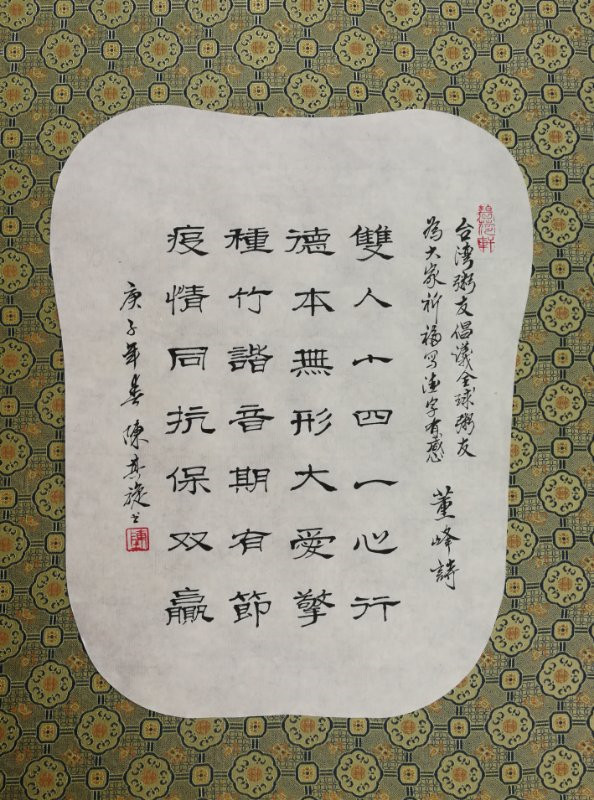 台湾粥友倡議全球粥友
為大家祈福写德字有感
董峰詩
雙人十四一心行
德本無形大愛擎
種竹諧音期有節
疫情同抗保双贏
庚子年春陳其旋书